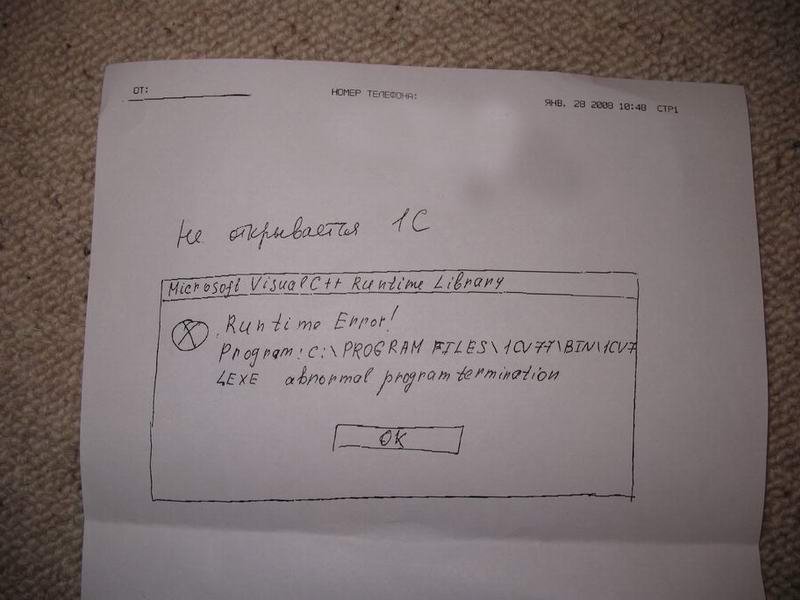 ОТ:
НОМЕР ТЕЛЕФОНА:
ЯНВ. 28 2008 10:48 СТР1
Не открывается 1С
Microsoft Visual C++ Runtime Library
Runtime Error!
Program: C:\PROGRAM FILES\1CV77\BIN\1CV7
4EXE abnormal program termination
OK